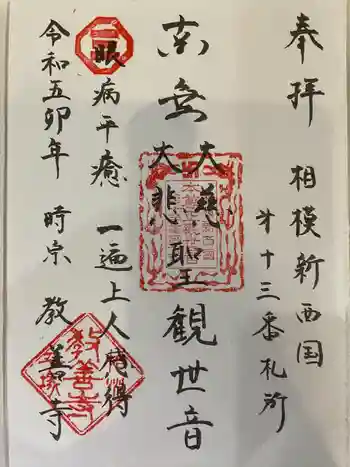 奉拝
相模新西国
才十三番札所
南無大慈大悲聖観世音
眼病平癒 一遍上人感得
令和五卯年 時宗 教善寺
教善寺